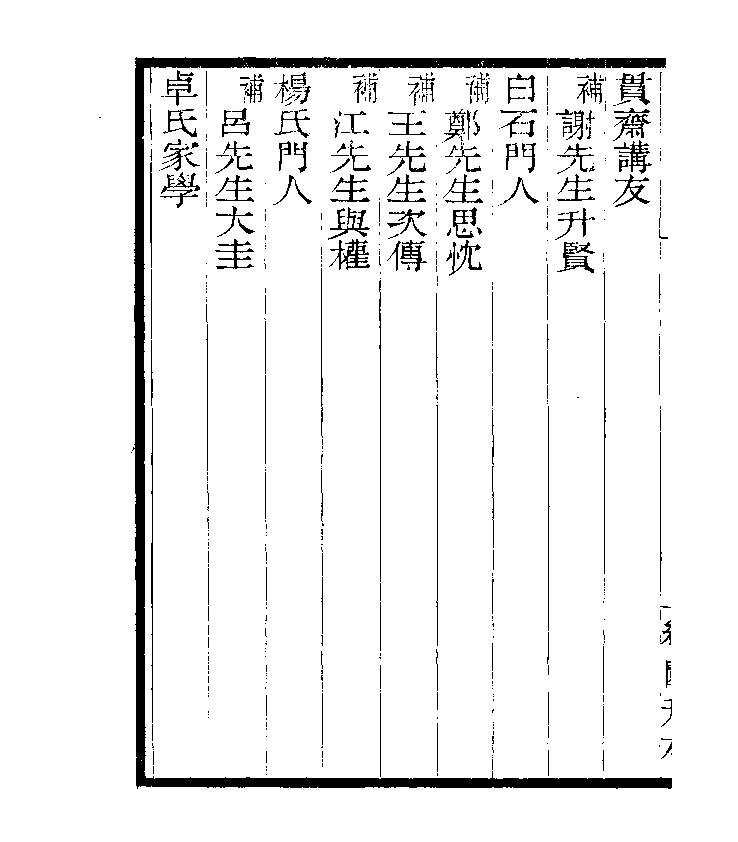 貫齋講友
補謝先生升賢
白石門人
補鄭先生思忱
補王先生次傳
補江先生與權
楊氏門人
補呂先生大圭
卓氏家學